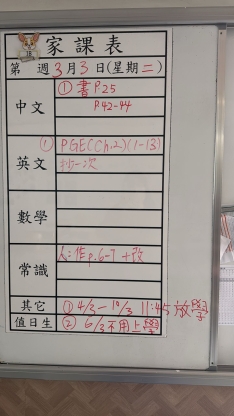 家課表
第 週 3月3日(星期二)
中文 ① 書 P25
P42-44
英文 ① PGE(Ch.2)(1-13)
抄一次
數學
常識 人:作p.6-7 +改
其它 ① 4/3-10/3 11:45 放學
值日生 ② 6/3不用上學